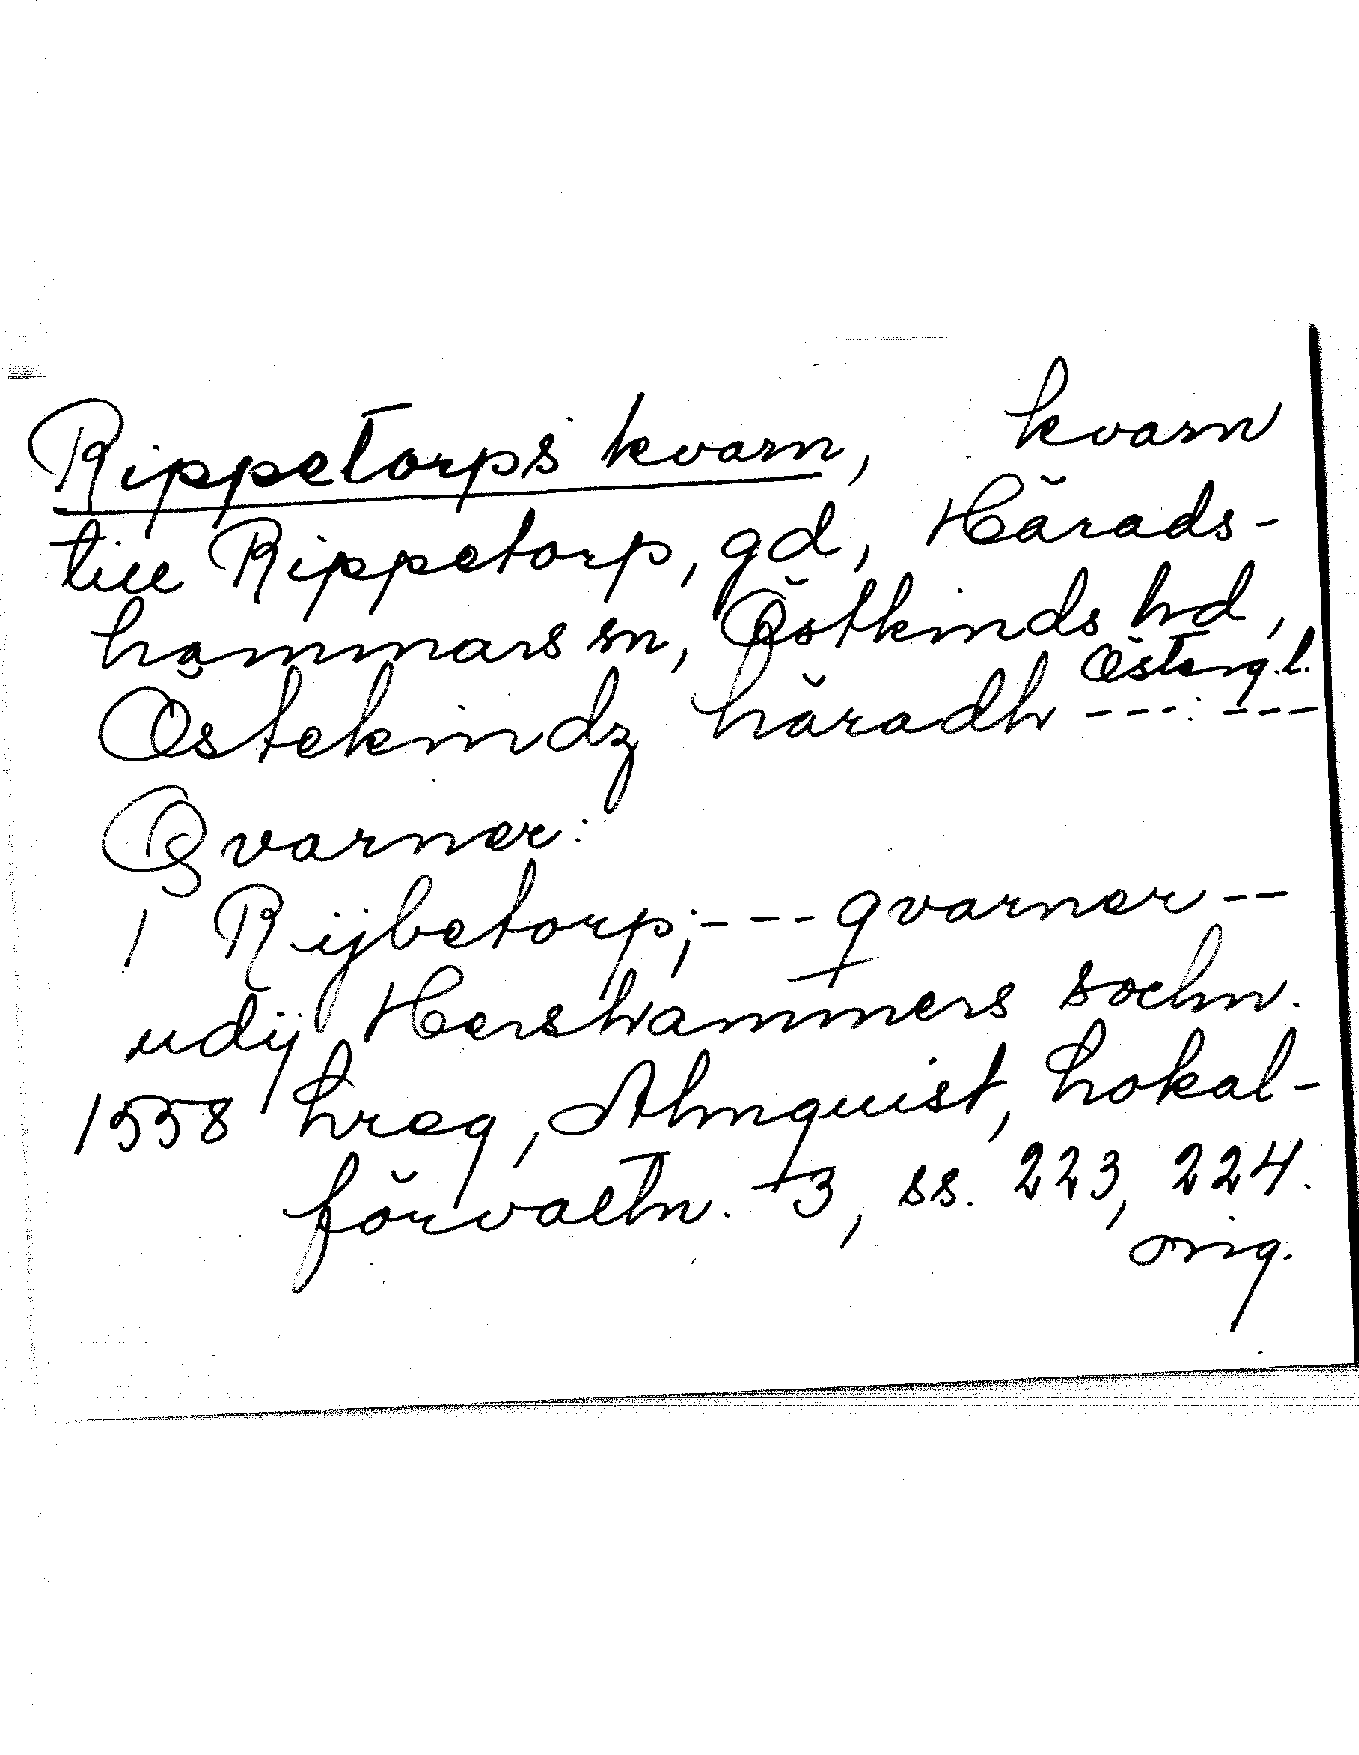 Rippetorps kvarn, kvarn
till Rippetorp, gd, Härads-
hammars sn, Östkinds hd,
Östergl.
Östekindz häradh --- ---
Qvarner:
1 Rijbetorp; --- qvarner --
udij Hershammers sochn.
1558 hreg, Almquist, Lokal-
förvaltn. 3, ss. 223, 224.
orig.